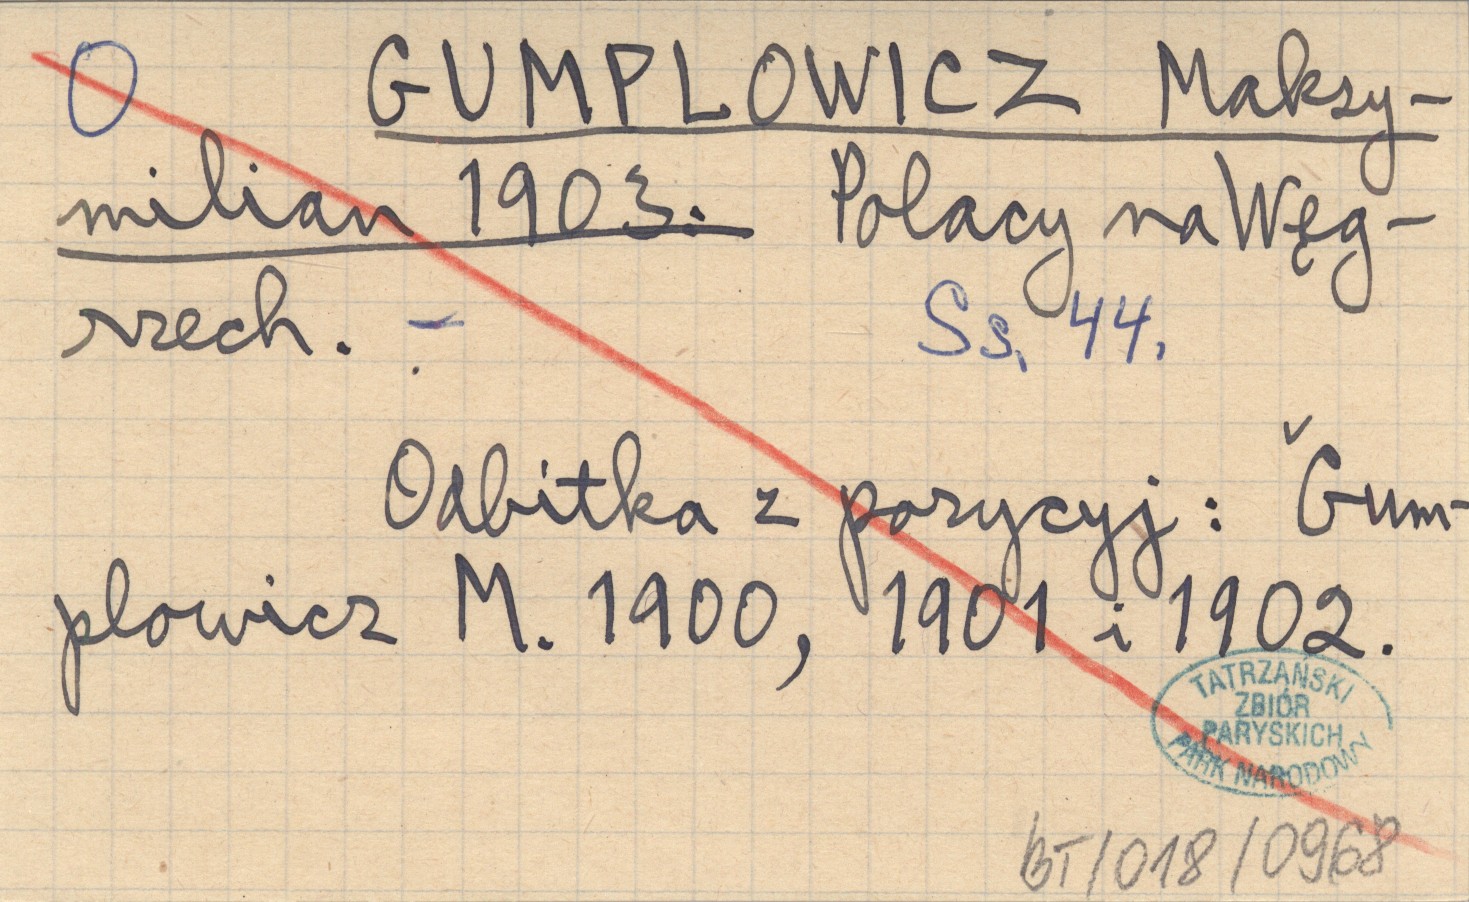 O GUMPLOWICZ Maksy-
milian 1903. Polacy na Węg-
rzech. - Ss. 44.
Odbitka z pozycyj: Gum-
plowicz M. 1900, 1901 i 1902.
TATRZAŃSKI
ZBIÓR
PARYSKICH
PARK NARODOWY
BT/018/0968